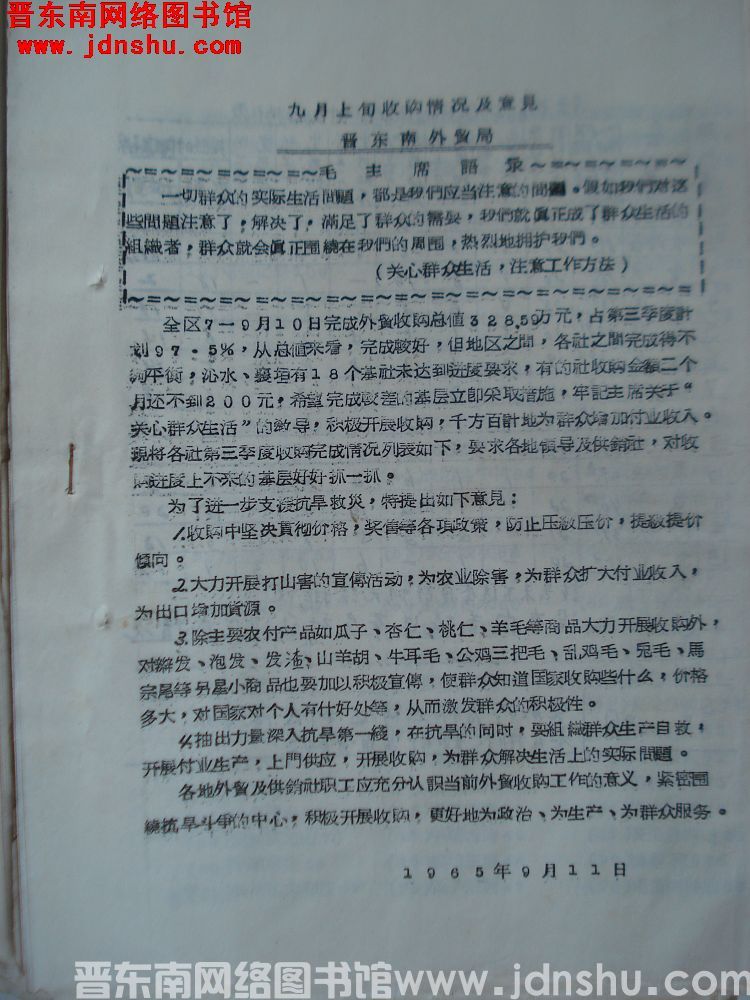 晋东南网络图书馆
www.jdnshu.com
九月上旬收购情况及意見
晋东南外貿局
~=~=~=~=~=~=~毛主席語录~=~=~=~=~=~=~
一切群众的实际生活問題，都是我們应当注意的問題。假如我們对这
些問題注意了，解决了，滿足了群众的需要，我們就眞正成了群众生活的
組織者，群众就会眞正围繞在我們的周围，热烈地拥护我們。
（关心群众生活，注意工作方法）
全区7—9月10日完成外貿收购总値328.5万元，占第三季度計
划97.5%，从总値来看，完成較好，但地区之間，各社之間完成得不
夠平衡，沁水、襄垣有18个基社未达到进度要求，有的社收购金額二个
月还不到200元，希望完成較差的基层立即采取措施，牢記主席关于“
关心群众生活”的敎导，积极开展收购，千方百計地为群众增加付业收入。
現将各社第三季度收购完成情况列表如下，要求各地領导及供銷社，对收
购进度上不来的基层好好抓一抓。
为了进一步支援抗旱救災，特提出如下意見：
1.收购中坚决貫彻价格，奖售等各項政策，防止压級压价，提級提价
傾向。
2.大力开展打山害的宣傳活动，为农业除害，为群众扩大付业收入，
为出口增加貨源。
3.除主要农付产品如瓜子、杏仁、桃仁、羊毛等商品大力开展收购外，
对辮发、泡发、发渣、山羊胡、牛耳毛、公鸡三把毛、乱鸡毛、兎毛、馬
宗尾等另星小商品也要加以积极宣傳，使群众知道国家收购些什么，价格
多大，对国家对个人有什好处等，从而激发群众的积极性。
4.抽出力量深入抗旱第一綫，在抗旱的同时，要組織群众生产自救，
开展付业生产，上門供应，开展收购，为群众解决生活上的实际問題。
各地外貿及供銷社职工应充分认識当前外貿收购工作的意义，紧密围
繞抗旱斗爭的中心，积极开展收购，更好地为政治、为生产、为群众服务。
1965年9月11日
晋东南网络图书馆www.jdnshu.com